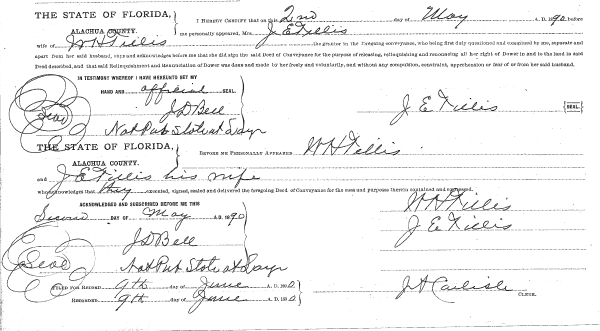 THE STATE OF FLORIDA,
ALACHUA COUNTY.
I HEREBY CERTIFY that on this 2nd day of May A. D. 1890 before
me personally appeared, Mrs. J E Tillis
wife of W H Tillis the grantor in the foregoing conveyance, who being first duly questioned and examined by me, separate and
apart from her said husband, says and acknowledges before me that she did sign the said Deed of Conveyance for the purpose of releasing, relinquishing and renouncing all her right of Dower in and to the land in said
Deed described, and that said Relinquishment and Renunciation of Dower was done and made by her freely and voluntarily, and without any compulsion, constraint, apprehension or fear of or from her said husband.
IN TESTIMONY WHEREOF I HAVE HEREUNTO SET MY
HAND AND official SEAL.
Seal J D Bell J E Tillis SEAL.
Not Pub State at Large
THE STATE OF FLORIDA,
ALACHUA COUNTY.
BEFORE ME PERSONALLY APPEARED W H Tillis
and J E Tillis his wife
who acknowledges that they executed, signed, sealed and delivered the foregoing Deed of Conveyance for the uses and purposes therein contained and expressed.
ACKNOWLEDGED AND SUBSCRIBED BEFORE ME THIS W H Tillis
Second DAY OF May A. D. 1890 J E Tillis
J D Bell
Seal Not Pub State at Large
FILED FOR RECORD 9th day of June A. D. 1890 J A Carlisle
RECORDED 9th day of June 1890 CLERK.